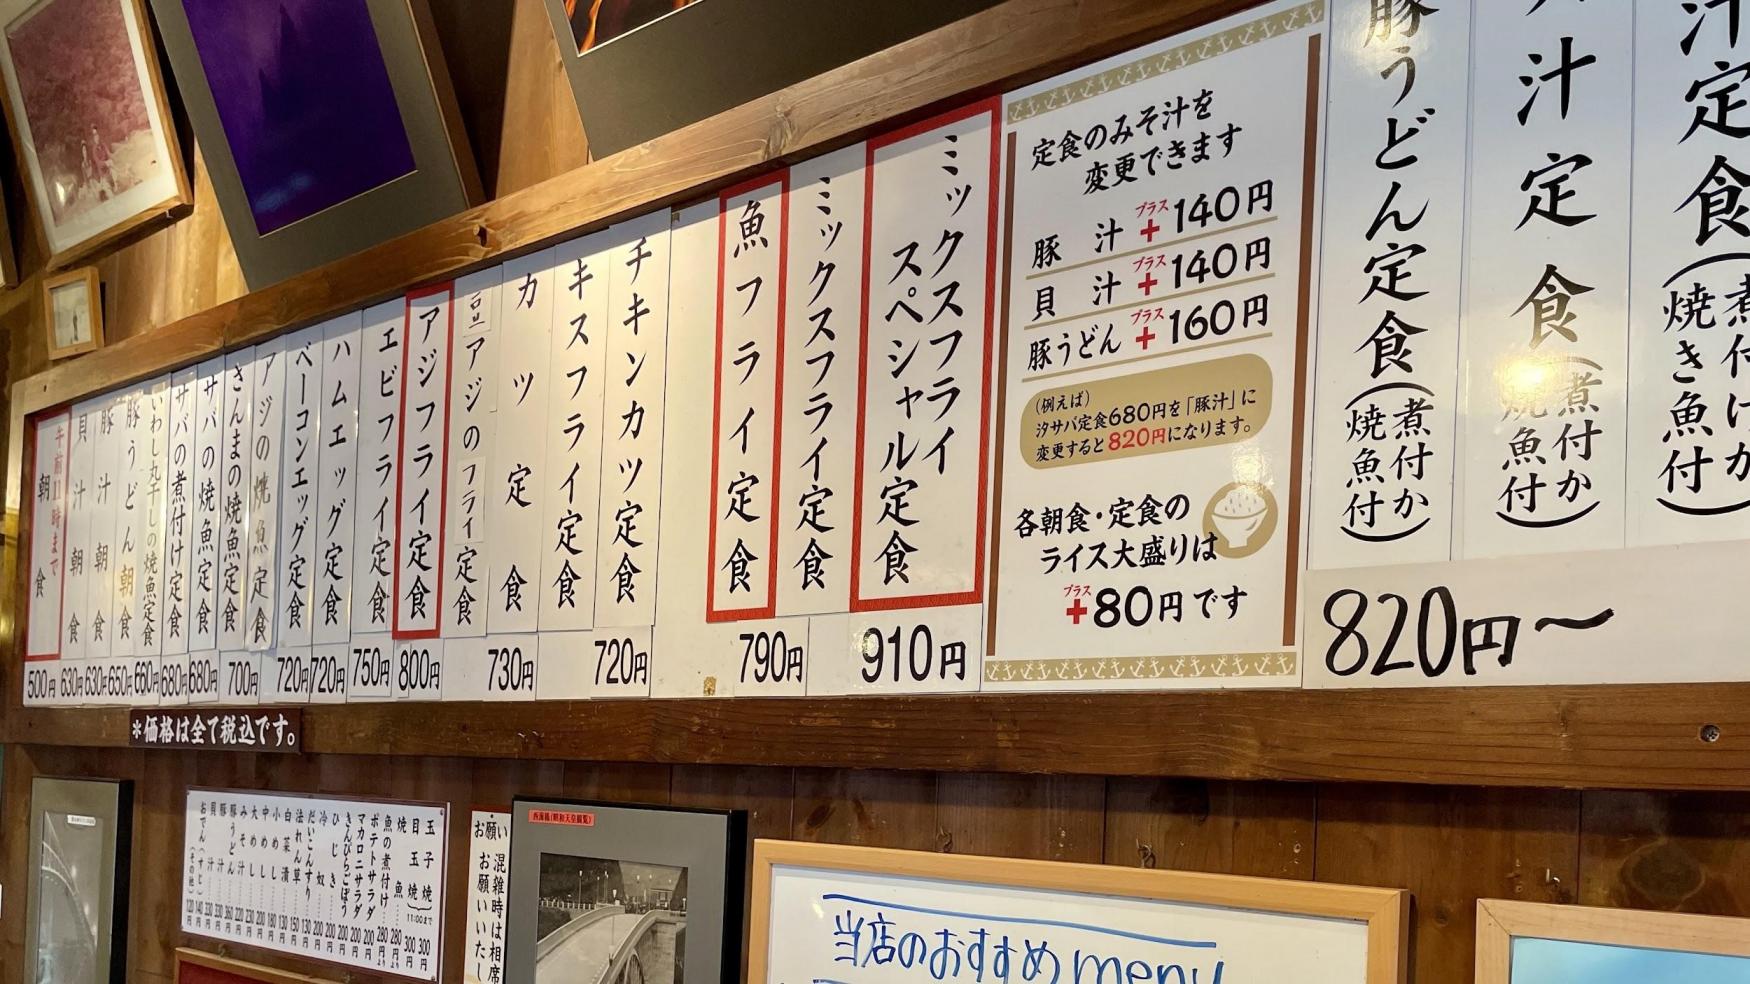 汁定食(煮付けか
焼き魚付)
汁定食(煮付か
焼魚付)
豚うどん定食(煮付か
焼魚付)
820円〜
定食のみそ汁を
変更できます
豚汁 プラス+140円
貝汁 プラス+140円
豚うどん プラス+160円
(例えば)
汐サバ定食680円を「豚汁」に
変更すると820円になります。
各朝食・定食の
ライス大盛りは
プラス+80円です
ミックスフライ
スペシャル定食
910円
ミックスフライ定食
魚フライ定食
790円
チキンカツ定食
720円
キスフライ定食
カツ定食
730円
豆アジのフライ定食
アジフライ定食
800円
エビフライ定食
750円
ハムエッグ定食
720円
ベーコンエッグ定食
720円
アジの焼魚定食
さんまの焼魚定食
700円
サバの焼魚定食
680円
サバの煮付け定食
680円
いわし丸干しの焼魚定食
660円
豚うどん朝食
650円
豚汁朝食
630円
貝汁朝食
630円
午前11時まで
朝食
500円
*価格は全て税込です。
玉子焼 300円
目玉焼 300円
(11:00まで)
焼魚 280円より
魚の煮付け 280円より
ポテトサラダ 200円
マカロニサラダ 200円
きんぴらごぼう 200円
ひじき 200円
冷奴 200円
だいこんすり 130円
法れん草 150円
白菜漬 130円
小めし 180円
中めし 200円
大めし 230円
みそ汁 220円
豚うどん 360円
豚汁 330円
貝汁 330円
おでん(すじ) 140円
(その他) 120円
お願い 混雑時は相席
お願いいたし
西海橋(昭和天皇御覧)
当店のおすすめmenu